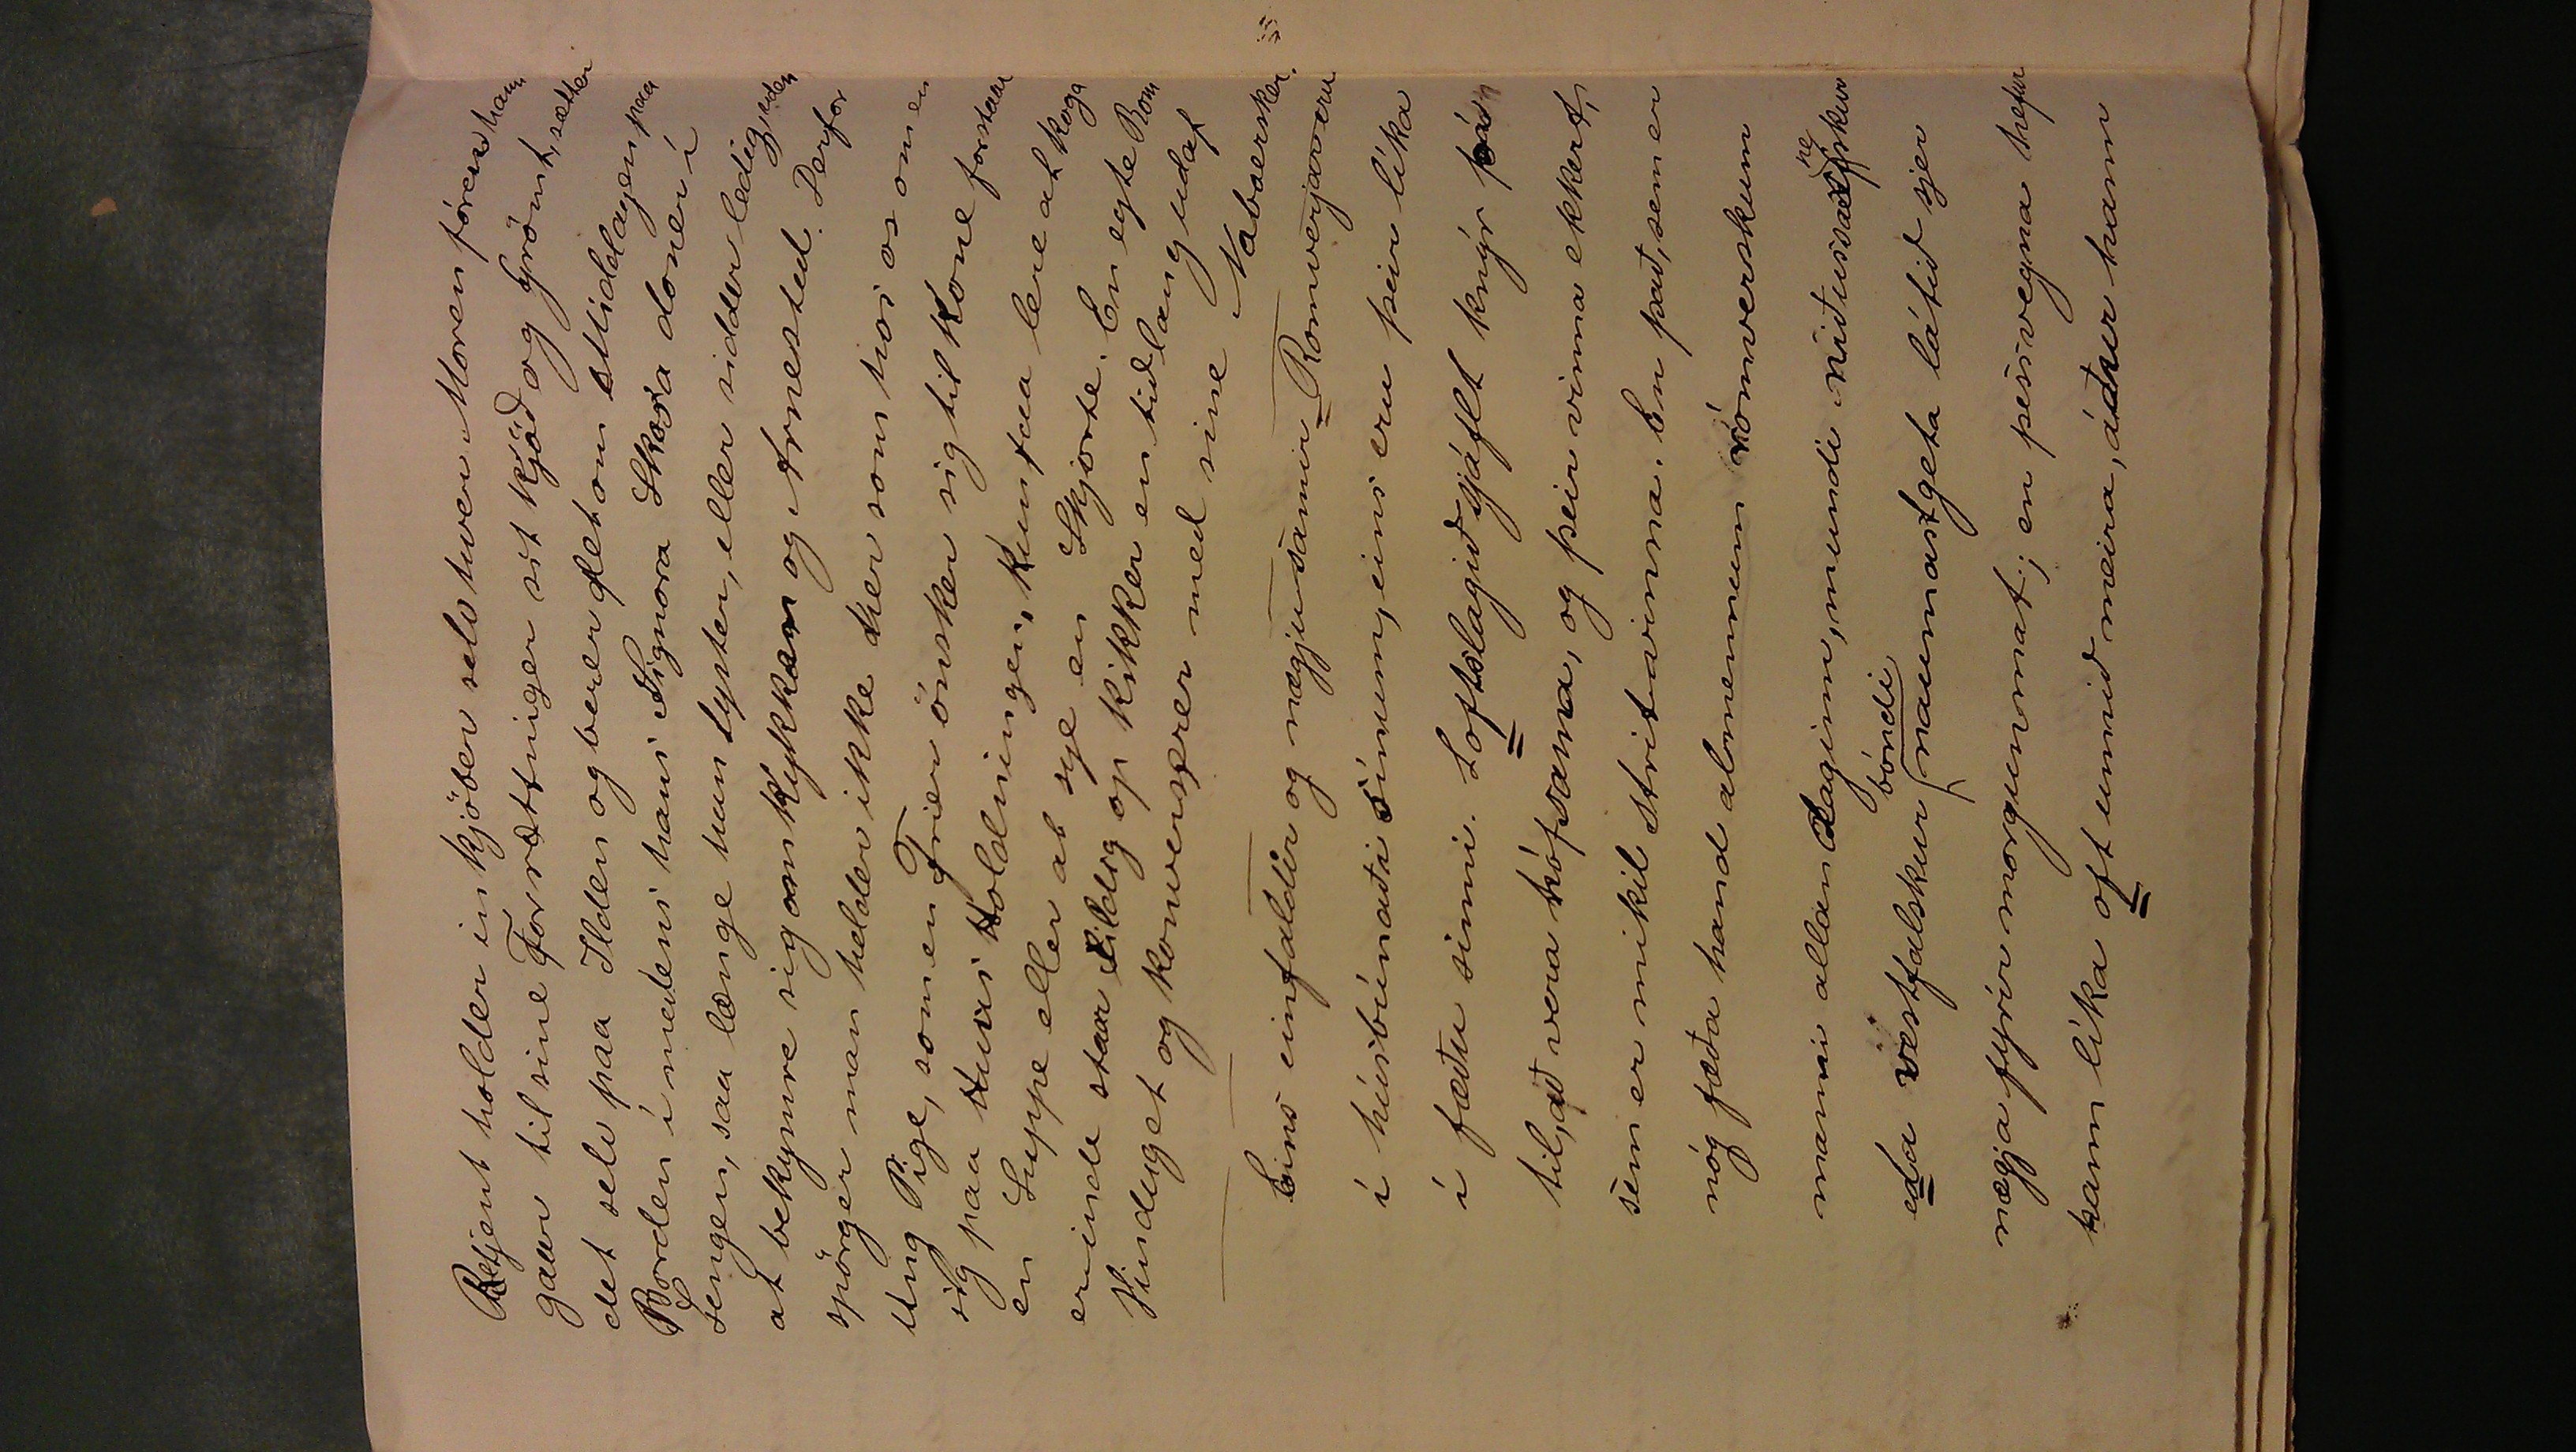 Betjent holder indkjöber selv hver Morgen förend han
gaar til sine Forretninger sit Kjöd og Grönt, sætter
det selv paa Ilden og berer det om Middagen paa
Borden i medens hans Signora Skosa doner i
Sengen, saa længe hun lyster, eller sidder ledig, uden
at bekymre sig om Kjøkken og Arnested. Derfor
spörger man helder ikke her som hos os om en
Ung Pige, som en Frier önsker sig til Kone forstaar
sig paa Huus Holdningen, kun paa lere at koga
en Suppe eller at sye en Skjorte. En egte Rom
erinde staar tildig op kikker en tidlang ud af
Vinduget og konverserer med sine Nabaersker.
Eins einfaldir og nægjusamir Romverjar eru
í húsbúnaði sínum, eins eru þeir líka
í fæðu sinni. Loftslagið sjáflt knýr þá
til, að vera hófsama, og þeir vinna ekkert,
sem er mikil stritvinna. En það, sem er
nóg fæða hand almennum rómverskum
manni allan daginn, mundi niðursax neskur
eda vestfalskur bóndi naumast geta látið sjer
nægja fyrir morgunmat; en þess vegna hefur
hann líka oft unnið meira, áður hann